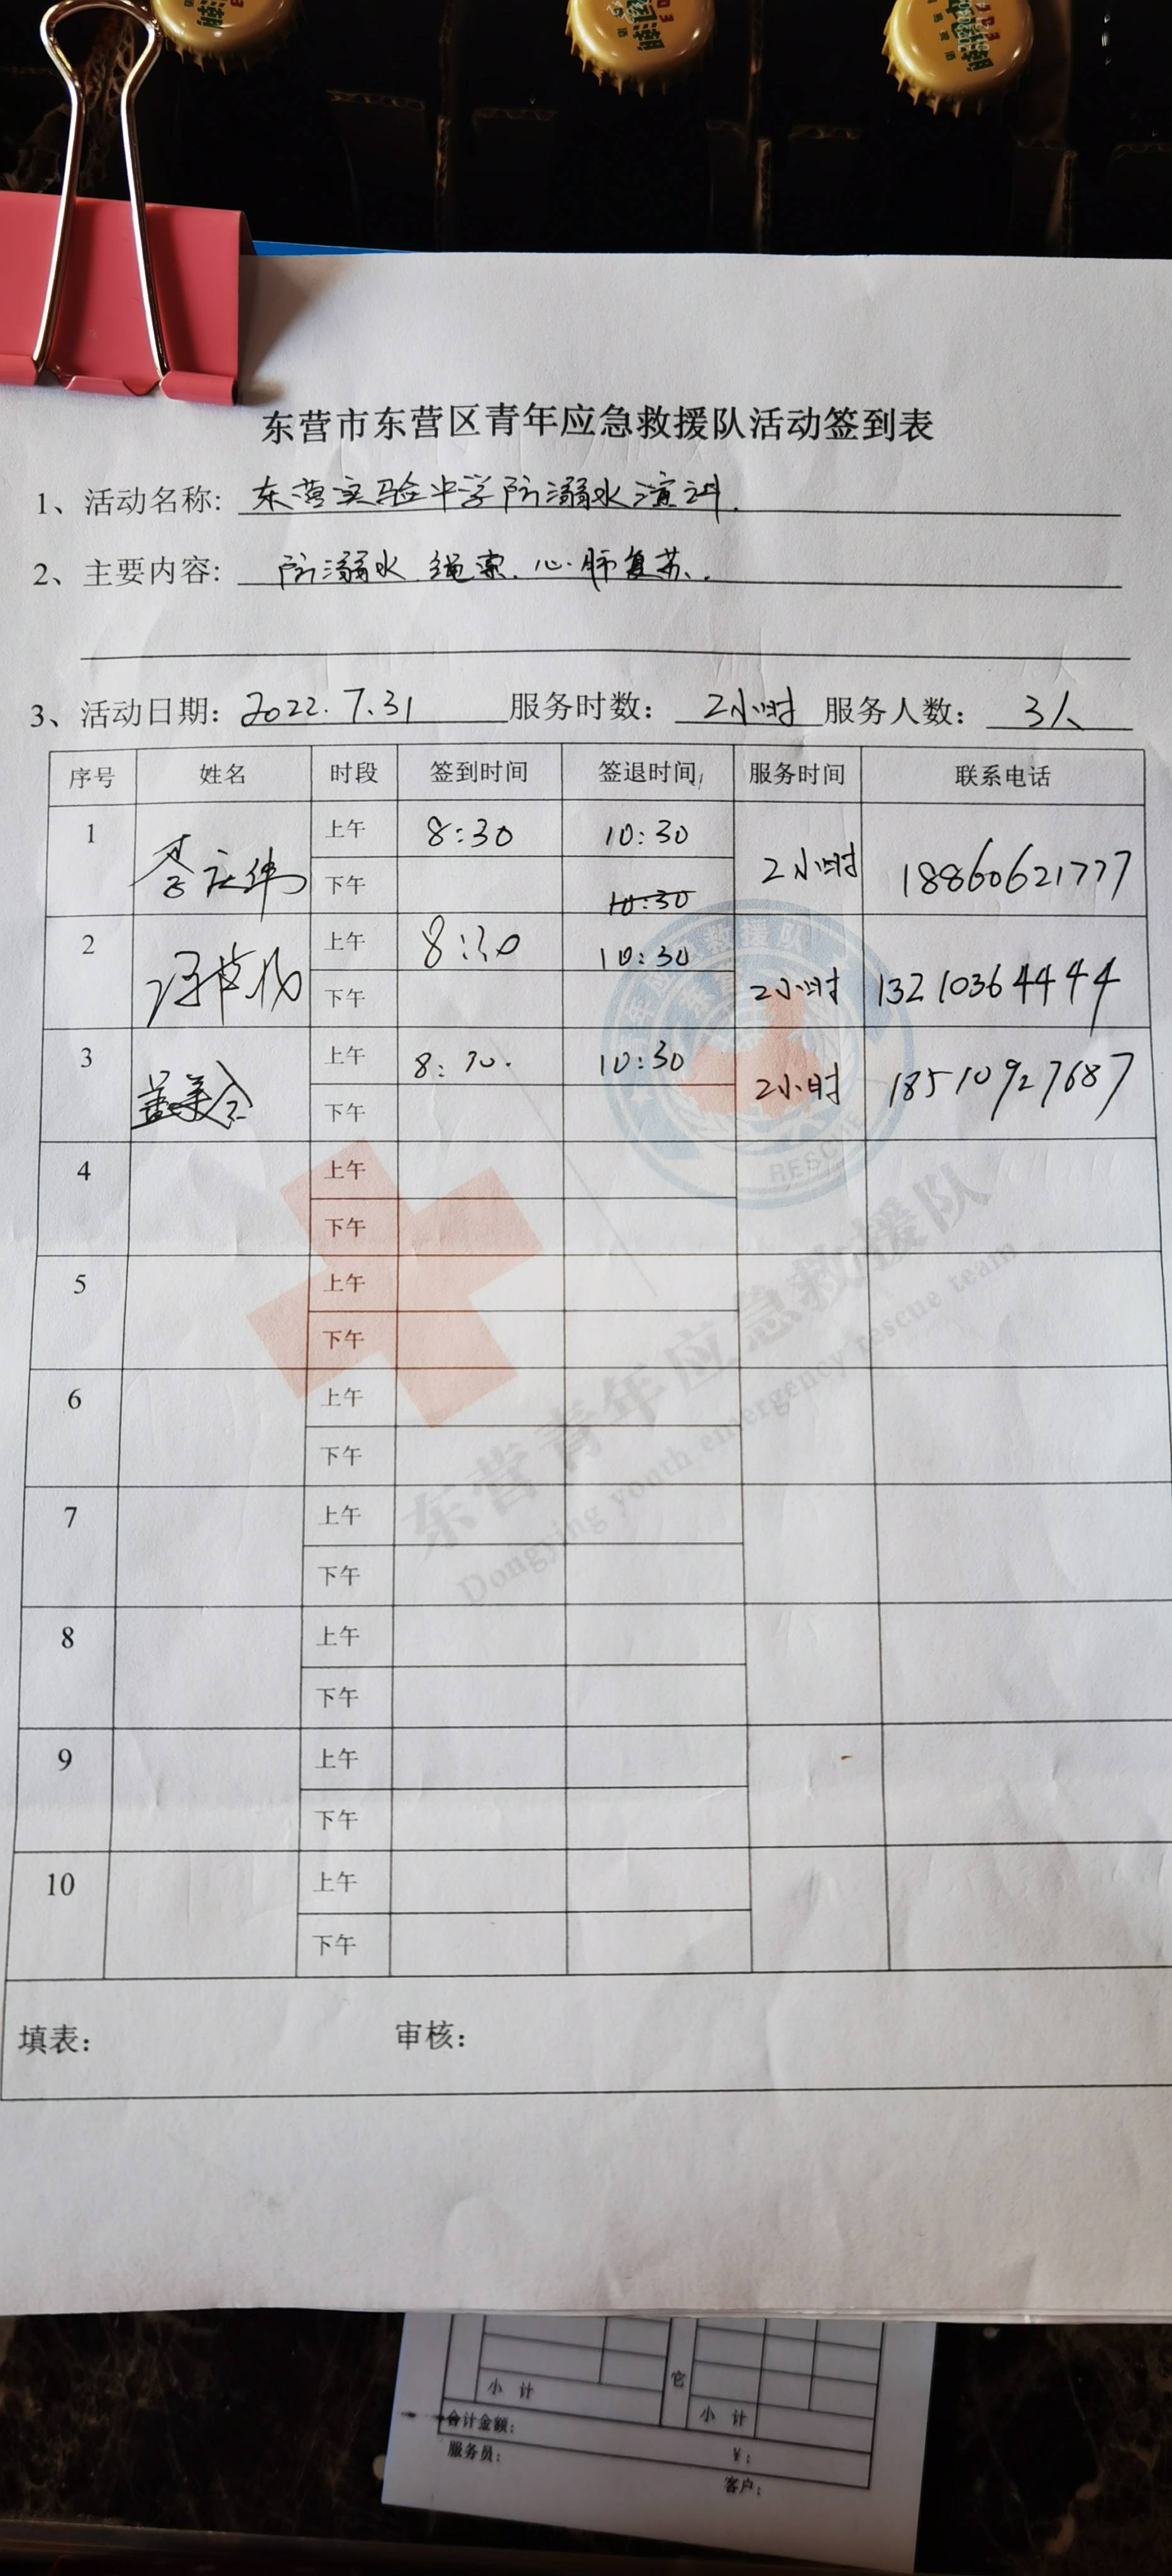 东营市东营区青年应急救援队活动签到表
1、活动名称: 东营实验中学防溺水演训.
2、主要内容: 防溺水.绳索.心肺复苏.
3、活动日期: 2022.7.31 服务时数: 2小时 服务人数: 3人
序号 姓名 时段 签到时间 签退时间 服务时间 联系电话
1 李庆伟 上午 8:30 10:30 2小时 18860621777
下午 10:30
2 上午 8:30 10:30 2小时 13210364444
下午
3 盖美令 上午 8:30. 10:30 2小时 18510927687
下午
4 上午
下午
5 上午
下午
6 上午
下午
7 上午
下午
8 上午
下午
9 上午
下午
10 上午
下午
东营青年应急救援队
Dongying youth emergency rescue team
填表: 审核:
小 计 它 小 计
合计金额: ¥:
服务员: 客户: